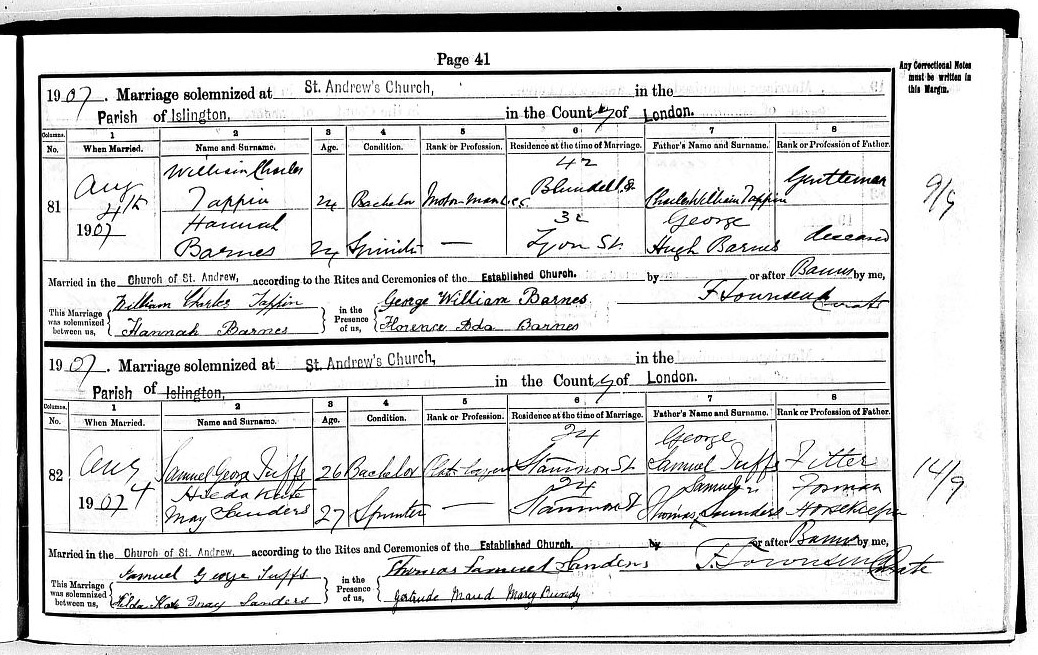 Page 41
Any Correctional Notes
must be written in
this Margin.
1907. Marriage solemnized at St. Andrew's Church, in the
Parish of Islington, in the County of London.
Columns. 1 2 3 4 5 6 7 8
No. When Married. Name and Surname. Age. Condition. Rank or Profession. Residence at the time of Marriage. Father's Name and Surname. Rank or Profession of Father.
William Charles 42 Gentleman
81 Aug 4th Tappin 24 Bachelor Motor-man Blundell St Charles William Tappin 9/9
1907 Hannah 32 George
Barnes 24 Spinster — Lyon St. Hugh Barnes deceased
Married in the Church of St. Andrew, according to the Rites and Ceremonies of the Established Church. by or after Banns by me,
This Marriage was solemnized between us, William Charles Tappin in the Presence of us, George William Barnes F Townsend
Hannah Barnes Florence Ada Barnes Curate
1907. Marriage solemnized at St. Andrew's Church, in the
Parish of Islington, in the County of London.
Columns. 1 2 3 4 5 6 7 8
No. When Married. Name and Surname. Age. Condition. Rank or Profession. Residence at the time of Marriage. Father's Name and Surname. Rank or Profession of Father.
24 George
82 Aug 4 Samuel George Tuffs 26 Bachelor Stanmore St Samuel Tuffs Fitter 14/9
1907 Hilda Kate 24 Samuel Forman
May Sanders 27 Spinster — Stanmore St Thomas Saunders Horsekeeper
Married in the Church of St. Andrew, according to the Rites and Ceremonies of the Established Church. by or after Banns by me,
This Marriage was solemnized between us, Samuel George Tuffs in the Presence of us, Thomas Samuel Sanders F. Townsend Curate
Hilda Kate May Sanders Gertrude Maud Mary Bundy